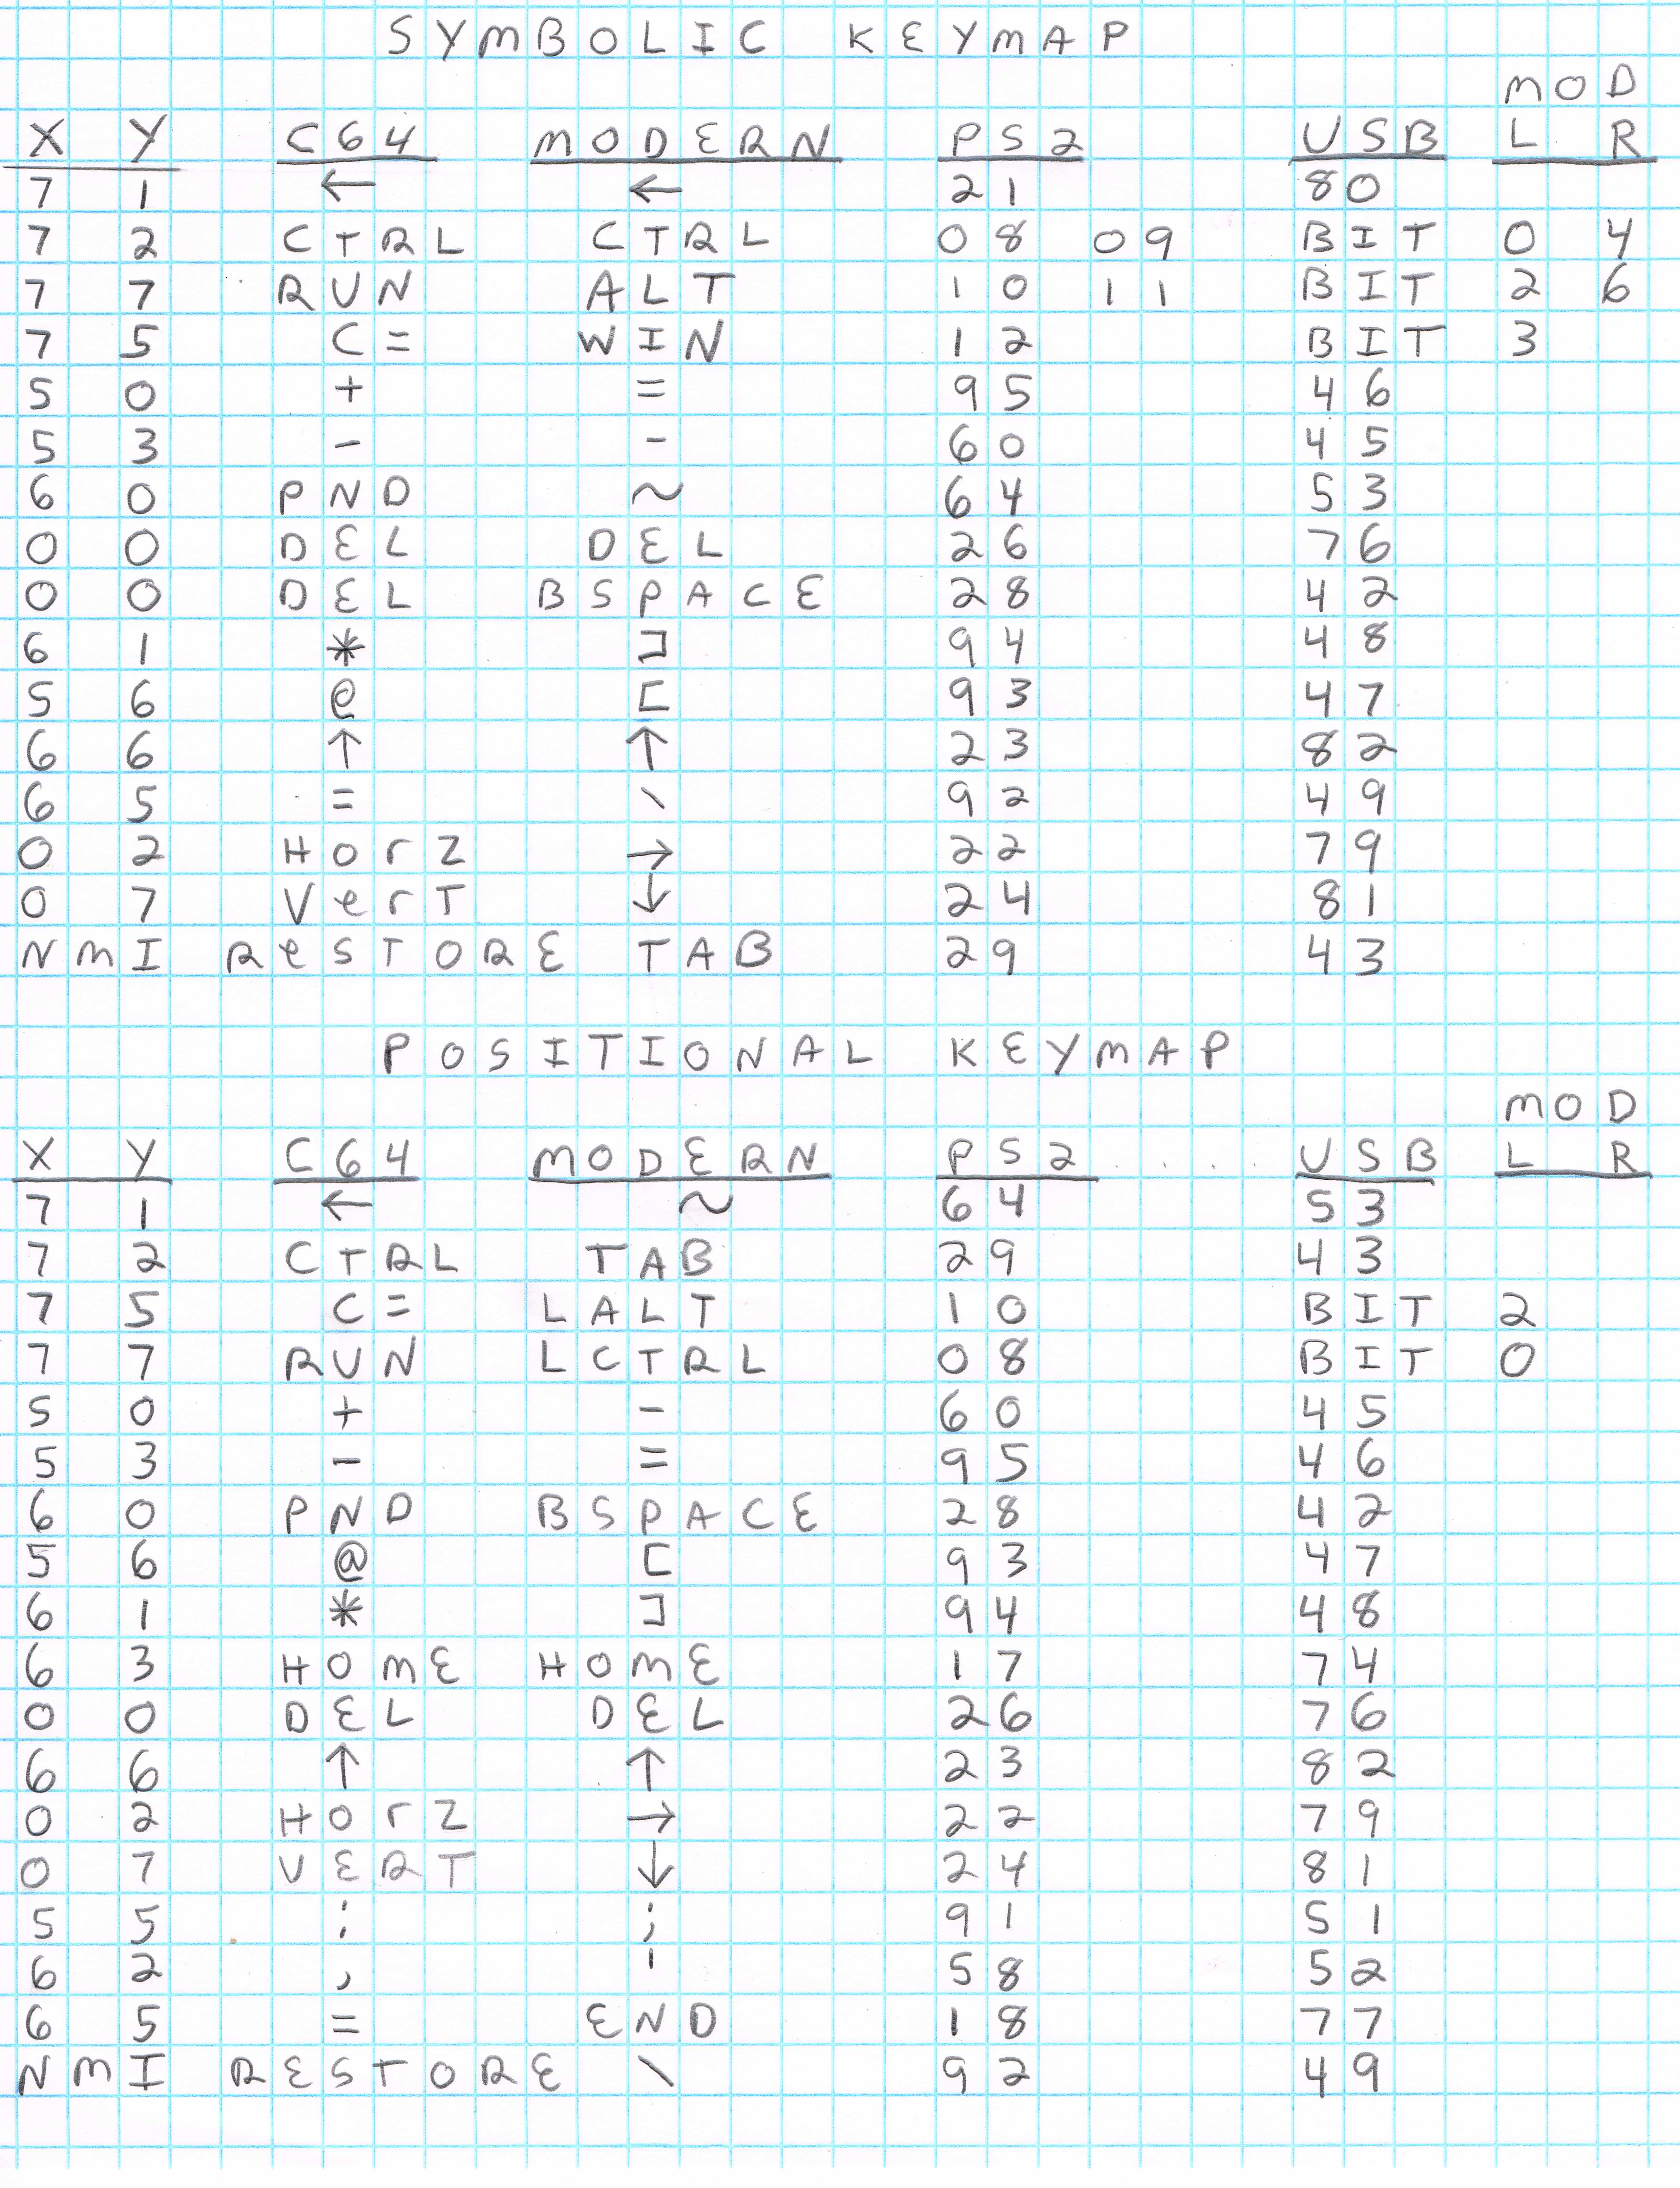 SYMBOLIC KEYMAP
MOD
X Y C64 MODERN PS2 USB L R
7 1 ← ← 21 80
7 2 CTRL CTRL 08 09 BIT 0 4
7 7 RUN ALT 10 11 BIT 2 6
7 5 C= WIN 12 BIT 3
5 0 + = 95 46
5 3 - - 60 45
6 0 PND ~ 64 53
0 0 DEL DEL 26 76
0 0 DEL BSPACE 28 42
6 1 * ] 94 48
5 6 @ [ 93 47
6 6 ↑ ↑ 23 82
6 5 = \ 92 49
0 2 HorZ → 22 79
0 7 VerT ↓ 24 81
NMI ReSTORE TAB 29 43
POSITIONAL KEYMAP
MOD
X Y C64 MODERN PS2 . . . USB L R
7 1 ← ~ 64 53
7 2 CTRL TAB 29 43
7 5 C= LALT 10 BIT 2
7 7 RUN LCTRL 08 BIT 0
5 0 + - 60 45
5 3 - = 95 46
6 0 PND BSPACE 28 42
5 6 @ [ 93 47
6 1 * ] 94 48
6 3 HOME HOME 17 74
0 0 DEL DEL 26 76
6 6 ↑ ↑ 23 82
0 2 HOrZ → 22 79
0 7 VERT ↓ 24 81
5 5 : ; 91 51
6 2 , ' 58 52
6 5 = END 18 77
NMI RESTORE \ 92 49